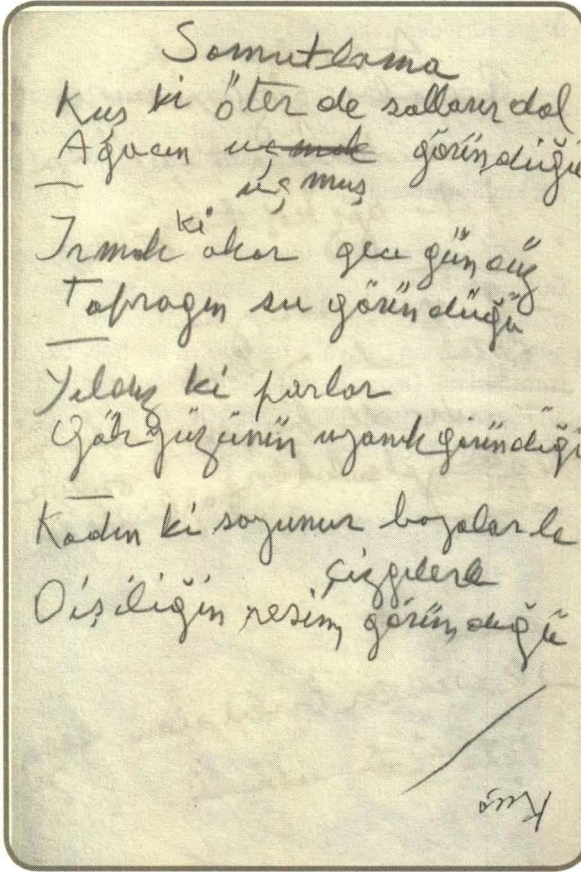 Somutlama
Kuş ki öter de sallanır dal
Ağacın uçmak göründüğü
uçmuş
Irmak ki akar gece gündüz
Toprağın su göründüğü
Yıldız ki parlar
Gökyüzünün uyanık göründüğü
Kadın ki soyunur boyalarla
çizgilerle
Dişiliğin resim göründüğü